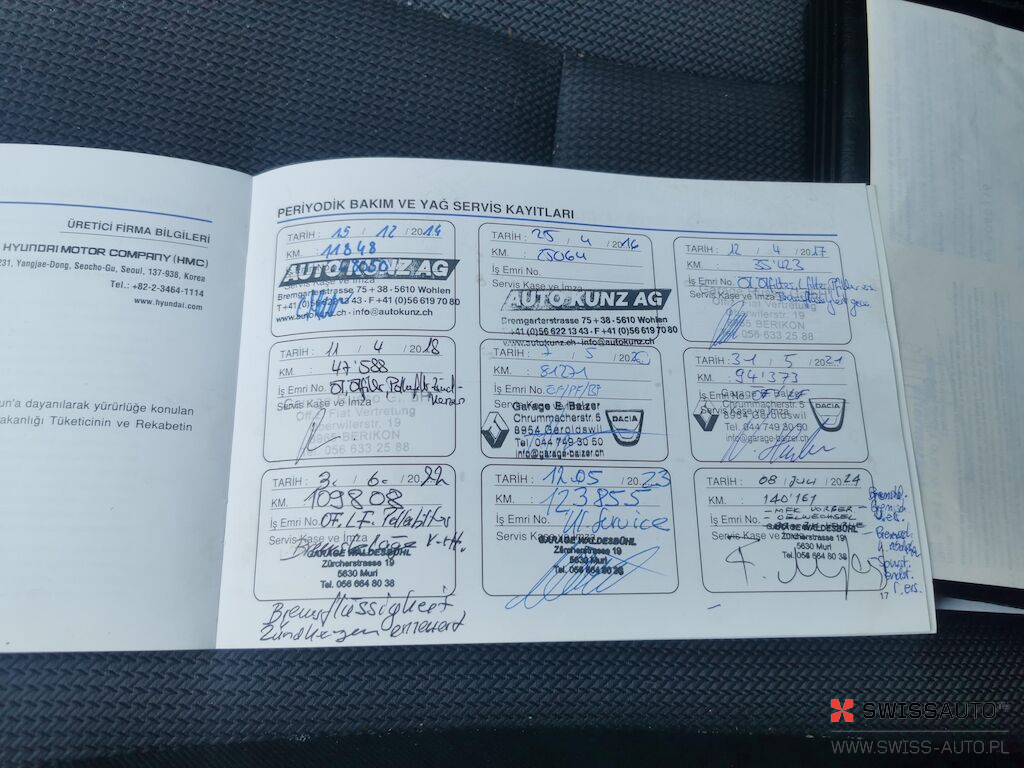 ÜRETİCİ FİRMA BİLGİLERİ
HYUNDAI MOTOR COMPANY (HMC)
231, Yangjae-Dong, Seocho-Gu, Seoul, 137-938, Korea
Tel.: +82-2-3464-1114
www.hyundai.com
un'a dayanılarak yürürlüğe konulan
akanlığı Tüketicinin ve Rekabetin
PERİYODİK BAKIM VE YAĞ SERVİS KAYITLARI
TARİH : 15 / 12 / 2014
KM. : 11848
AUTO KUNZ AG
Servis Kaşe ve İmza
Bremgarterstrasse 75 + 38 - 5610 Wohlen
T +41 (0)56 · F +41 (0)56 619 70 80
www.autokunz.ch - info@autokunz.ch
TARİH : 25 / 4 / 2016
KM. : 25064
İş Emri No.
AUTO KUNZ AG
Bremgarterstrasse 75 + 38 - 5610 Wohlen
+41 (0)56 622 13 43 - F +41 (0)56 619 70 80
www.autokunz.ch - info@autokunz.ch
TARİH : 12 / 4 / 2017
KM. : 35'423
İş Emri No.
Servis Kaşe ve İmza
BERIKON
056 633 25 88
TARİH : 11 / 4 / 2018
KM. : 47'588
İş Emri No. Öl, Ölfilter, Pollenfilter
Servis Kaşe ve İmza
Off. Fiat Vertretung
Oberwilerstr. 19
8965 BERIKON
056 633 25 88
TARİH : 7 / 5 / 2020
KM. : 81271
İş Emri No. ÖF/PF/BF
Servis
Garage E. Balzer
Chrummacherstr. 5
8954 Geroldswil
Tel. 044 749 30 50
info@garage-balzer.ch
DACIA
TARİH : 31 / 5 / 2021
KM. : 94'373
İş Emri No.
Servis Kaşe ve İmza
Chrummacherstr. 5
8954 Geroldswil
Tel. 044 749 30 50
info@garage-balzer.ch
DACIA
TARİH : 3. / 6. / 2022
KM. : 109808
İş Emri No. ÖF, LF, Pollenfilter
Servis Kaşe ve İmza
GARAGE WALDESBÜHL
Zürcherstrasse 19
5630 Muri
Tel. 056 664 80 38
Bremsflüssigkeit
Zündkerzen erneuert
TARİH : 12.05 / 2023
KM. : 123855
İş Emri No. Service
Servis Kaşe ve İmza
GARAGE WALDESBÜHL
Zürcherstrasse 19
5630 Muri
Tel. 056 664 80 38
TARİH : 08 / Juli / 2024
KM. : 140'161
İş Emri No. - OELWECHSEL
Servis Kaşe ve İmza
GARAGE WALDESBÜHL
Zürcherstrasse 19
5630 Muri
Tel. 056 664 80 38
17
SWISSAUTO
WWW.SWISS-AUTO.PL